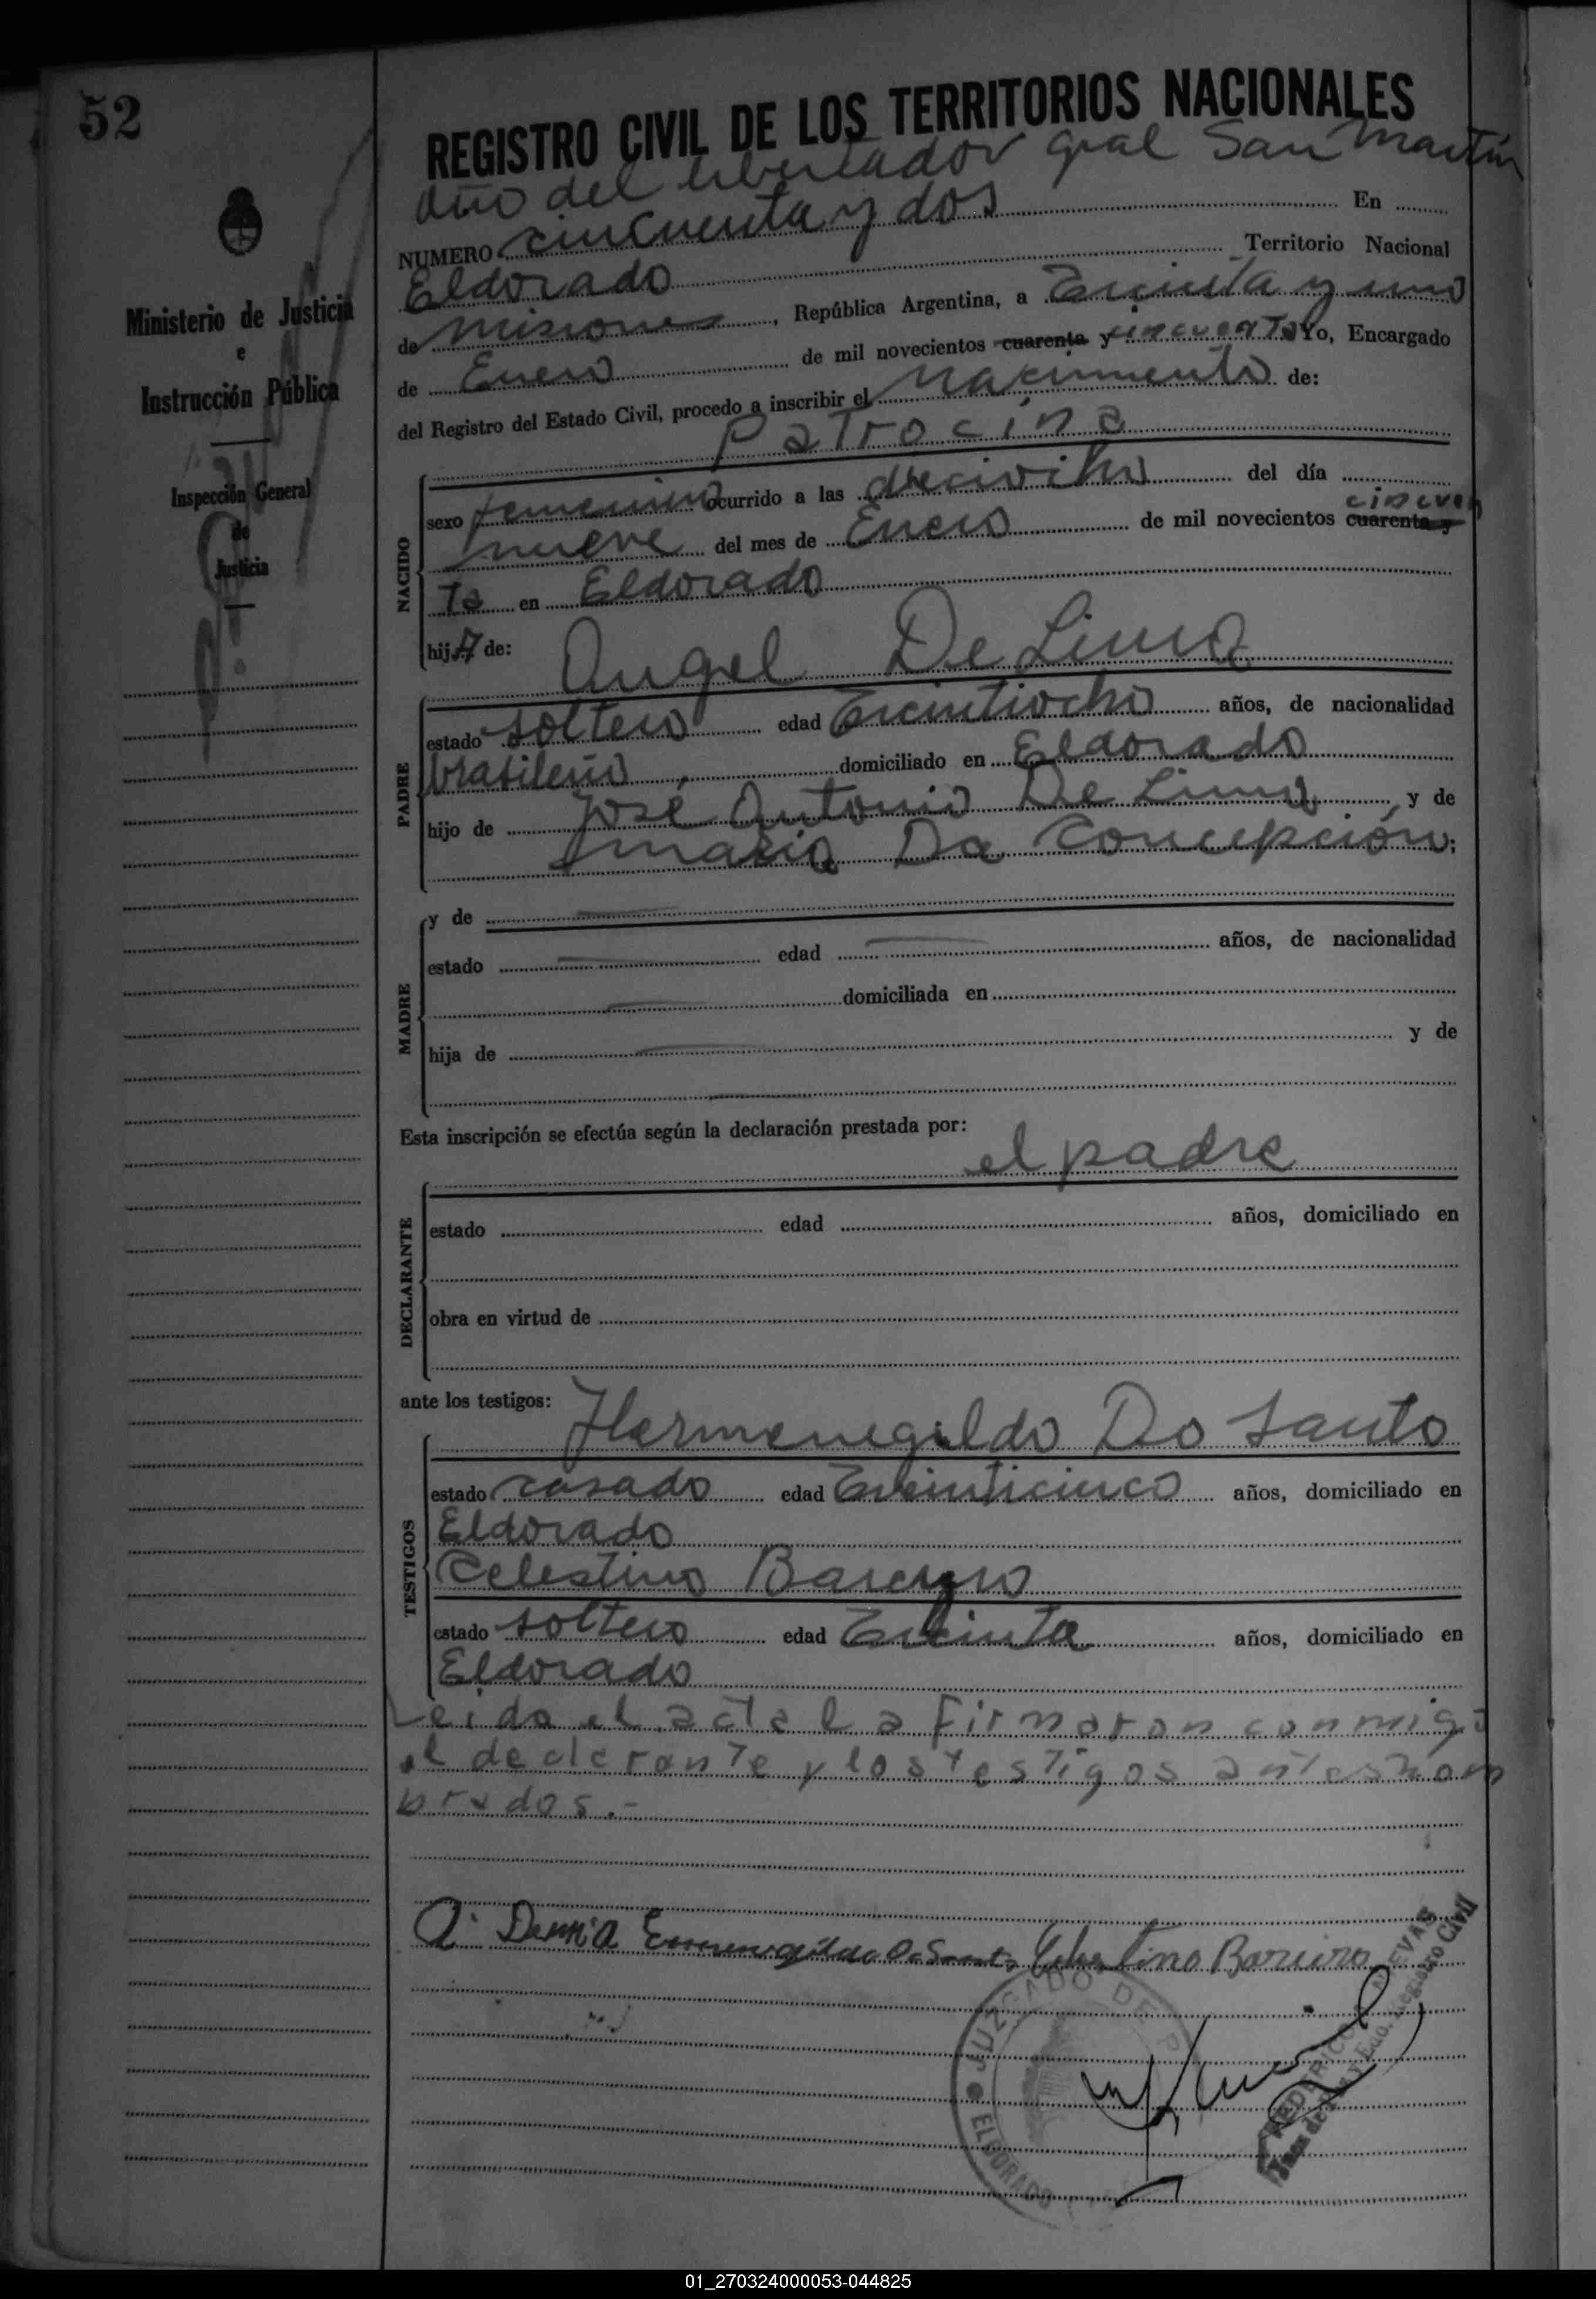 52
REGISTRO CIVIL DE LOS TERRITORIOS NACIONALES
Año del libertador Gral San Martín
NUMERO cincuenta y dos En
Eldorado Territorio Nacional
de Misiones, República Argentina, a treinta y uno
de Enero de mil novecientos cuarenta y cincuenta Yo, Encargado
del Registro del Estado Civil, procedo a inscribir el nacimiento de:
Patrocina
Ministerio de Justicia
e
Instrucción Pública
Inspección General
de
Justicia
NACIDO
sexo femenino ocurrido a las dieciocho del día
nueve del mes de Enero de mil novecientos cuarenta y cincuen
ta en Eldorado
hija de:
Angel De Lima
PADRE
estado soltero edad treintiocho años, de nacionalidad
brasileño, domiciliado en Eldorado
hijo de José Antonio De Lima, y de
Maria Da Concepción;
MADRE
y de
estado edad años, de nacionalidad
domiciliada en
hija de y de
Esta inscripción se efectúa según la declaración prestada por:
el padre
DECLARANTE
estado edad años, domiciliado en
obra en virtud de
ante los testigos:
TESTIGOS
Hermenegildo Do Santo
estado casado edad treinticinco años, domiciliado en
Eldorado
Celestino Bareyro
estado soltero edad treinta años, domiciliado en
Eldorado
Leida el acta la firmaron conmigo
el declarante y los testigos antesnom
brados.-
Celestino Bareiro
JUZGADO DE P
ELDORADO
FEDERICO NUEVAS
Juez de Paz y Edo. Registro Civil
01_270324000053-044825